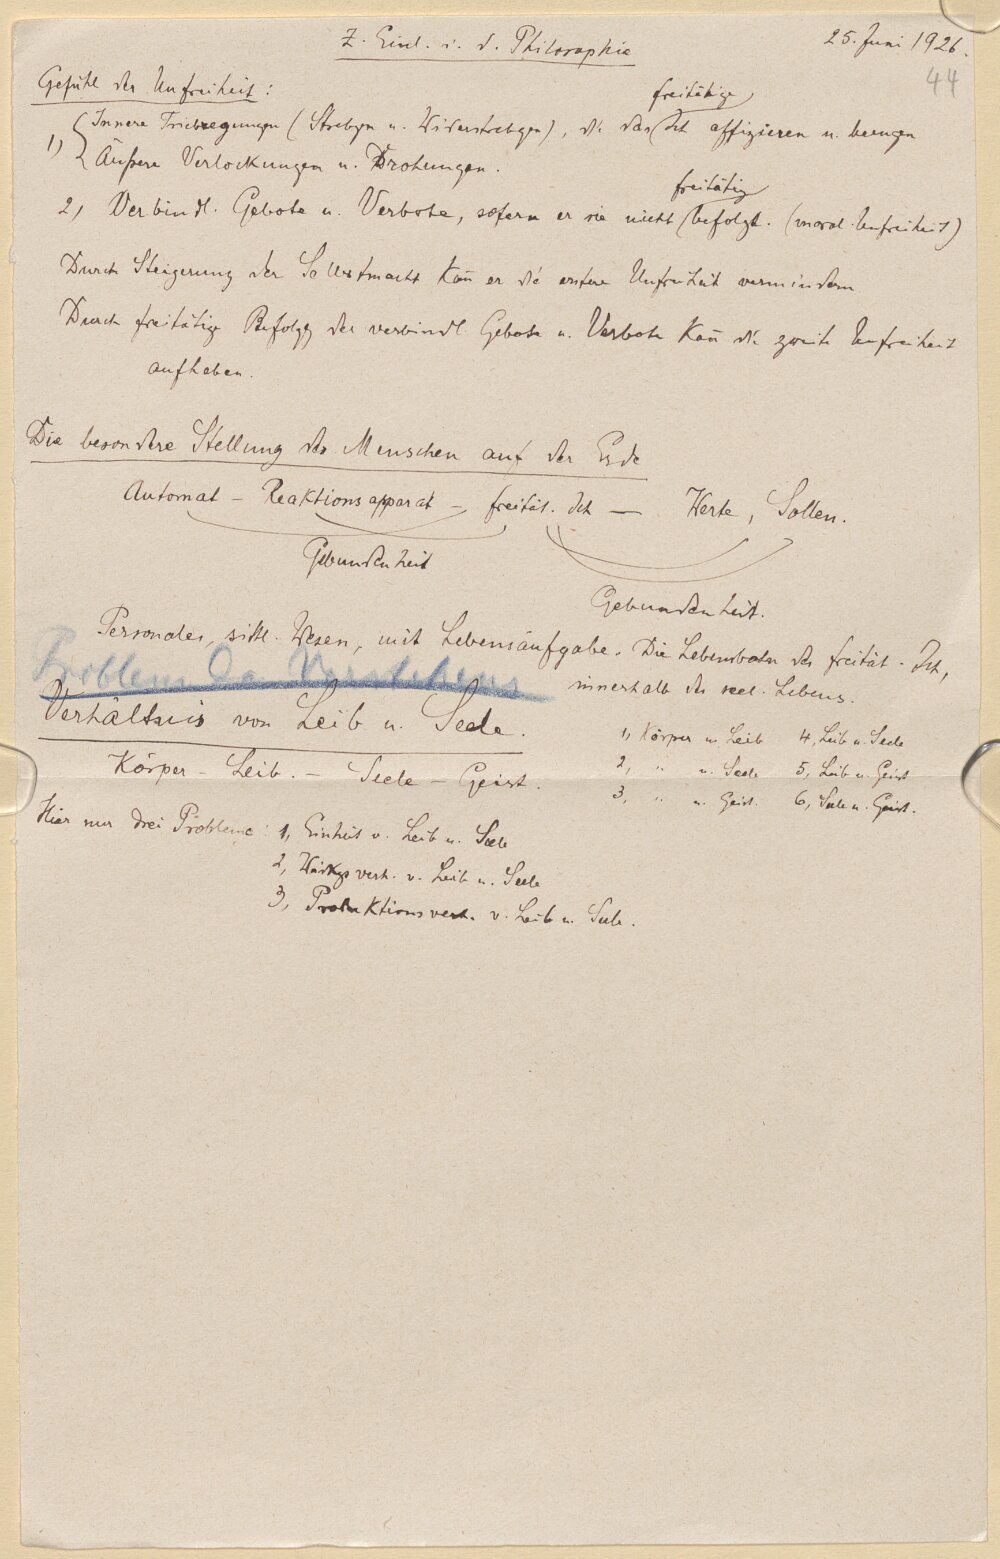 Z. Einl. i. d. Philosophie
25. Juni 1926.
44
Gefühl der Unfreiheit:
freitätige
1, Innere Triebregungen (Strebgn u. Widerstrebgen), die das Ich affizieren u. beengen
Äußere Verlockungen u. Drohungen.
freitätig
2, Verbindl. Gebote u. Verbote, sofern er sie nicht befolgt. (moral. Unfreiheit)
Durch Steigerung der Selbstmacht kan̄ er die erstere Unfreiheit vermindern
Durch freitätige Befolgg der verbindl. Gebote u. Verbote kan̄ die zweite Unfreiheit
aufheben.
Die besondere Stellung des Menschen auf der Erde
Automat – Reaktionsapparat – freität. Ich – Werte, Sollen.
Gebundenheit
Gebundenheit.
Personales, sittl. Wesen, mit Lebensaufgabe. Die Lebensbahn des freität. Ich,
innerhalb des seel. Lebens.
Problem des Verstehens
Verhältnis von Leib u. Seele.
Körper – Leib. – Seele – Geist.
1, Körper u. Leib 4, Leib u. Seele
2, " u. Seele 5, Leib u. Geist
3, " u. Geist. 6, Seele u. Geist.
Hier nur drei Probleme: 1, Einheit v. Leib u. Seele
2, Wirkgs verh. v. Leib u. Seele
3, Produktionsverh. v. Leib u. Seele.